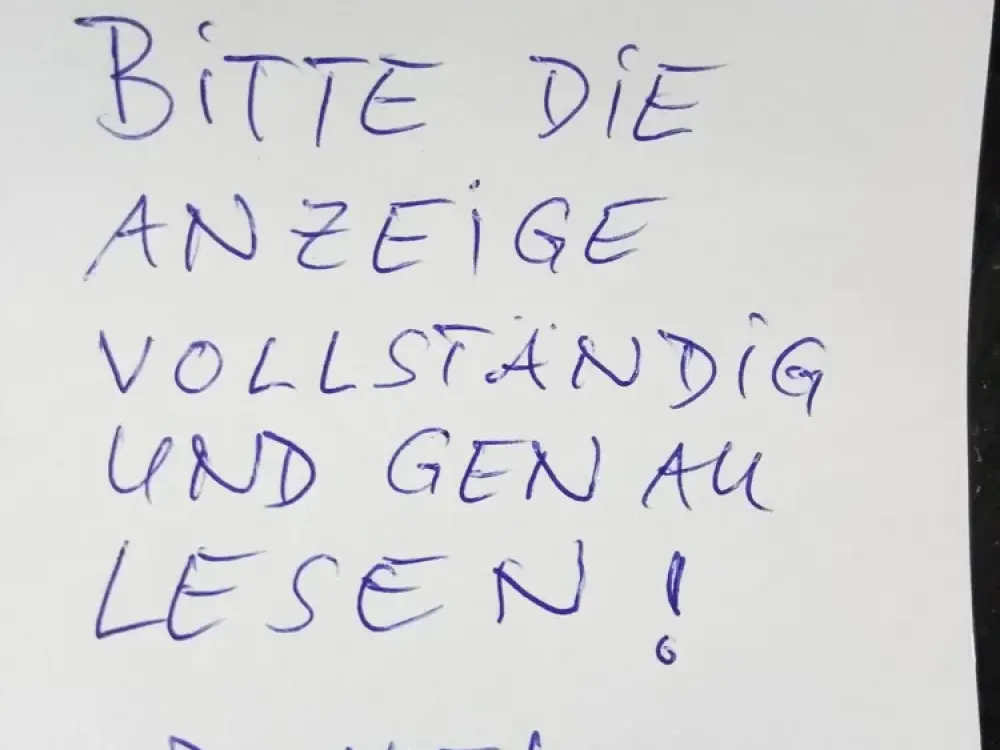 BITTE DIE
ANZEIGE
VOLLSTÄNDIG
UND GENAU
LESEN!